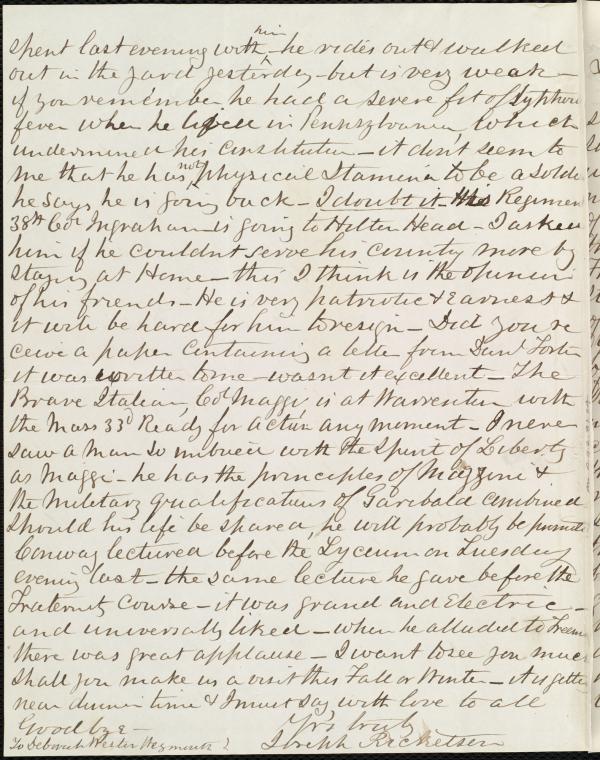 him
spent last evening with - he rides out & walked
out in the yard yesterday - but is very weak -
if you remember he had a severe fit of Syphoid
fever when he lived in Pennsylvania, which
undermined his constitution - it dont seem to
not
me that he has physical Stamina to be a solde
he says he is going back - I doubt it - His Regimen
38th Col Ingraham is going to Hilton Head - I asked
him if he couldnt serve his country more by
staying at Home - this I think is the opinion
of his friends - He is very patriotic & Earnest &
it will be hard for him to resign - Did you re
ceive a paper containing a letter from Danl Foster
it was written to me - wasnt it excellent - The
Brave Italian, Col Maggi, is at Warrenton with
the Mass 33d Ready for action any moment - I never
saw a Man so imbued with the Spirit of Liberty
as Maggi - he has the principles of Mazzini &
the Military qualifications of Garibaldi combined
should his life be spared, he will probably be promote
Conway lectured before the Lyceum on Tuesday
evening last - the same lecture he gave before the
Fraternity Course - it was grand and Electric -
and universally liked - when he alluded to Freem
there was great applause - I want to see you much
shall you make us a visit this Fall or Winter - it is gettin
near dinner time & I must say with love to all
Good bye -
Yrs truly
Joseph Ricketson
To Deborah Weston Weymouth